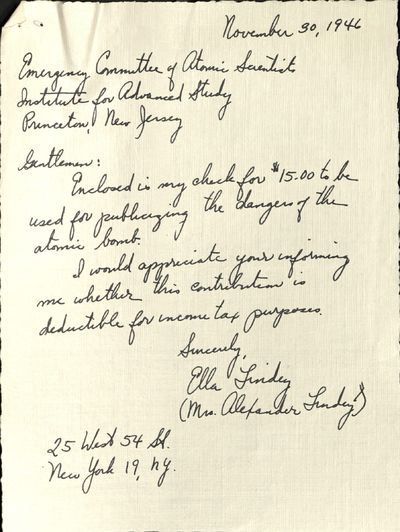 November 30, 1946
Emergency Committee of Atomic Scientists
Institute for Advanced Study
Princeton, New Jersey
Gentlemen:
Enclosed is my check for $15.00 to be
used for publicizing the dangers of the
atomic bomb.
I would appreciate your informing
me whether this contribution is
deductible for income tax purposes.
Sincerely,
Ella Lindey
(Mrs. Alexander Lindey)
25 West 54 St.
New York 19, NY.